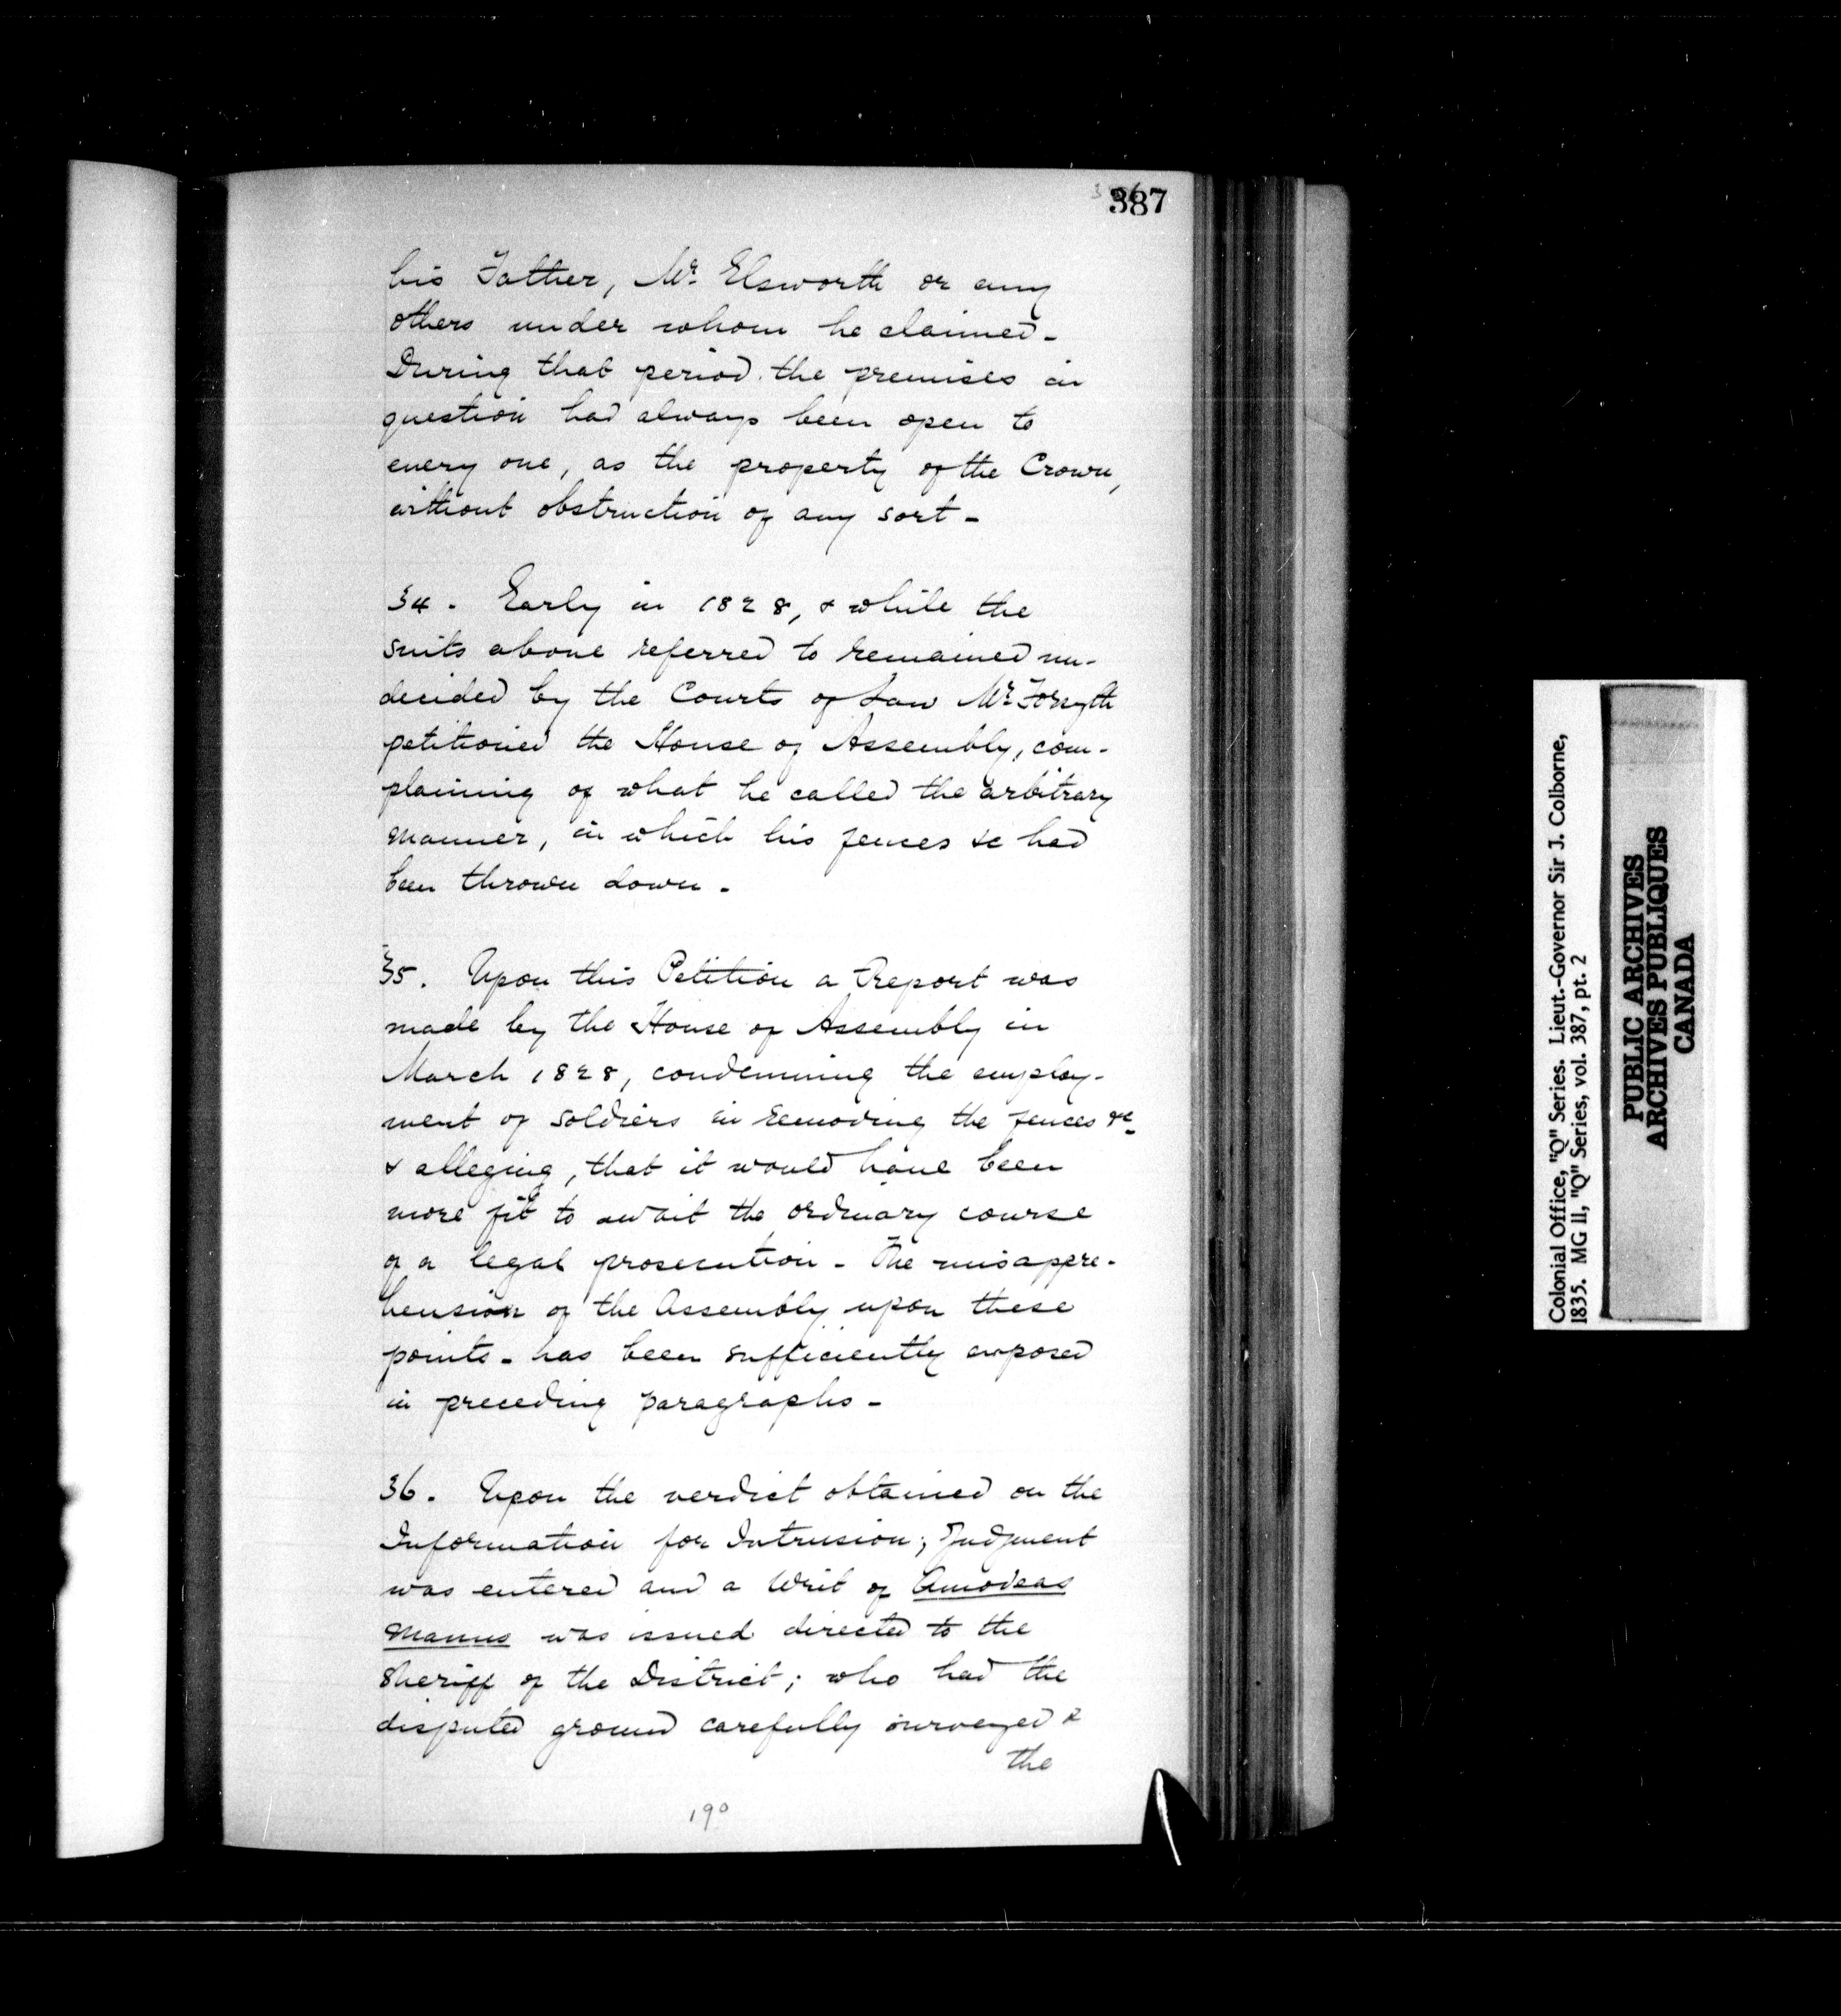 387
his Father, Mr. Elsworth or any
others under whom he claimed -
During that period the premises in
question had always been open to
every one, as the property of the Crown,
without obstruction of any sort -
34. Early in 1828, & while the
suits above referred to remained un-
decided by the Courts of Law Mr. Forsyth
petitioned the House of Assembly, com-
plaining of what he called the arbitrary
manner, in which his fences &c had
been thrown down -
35. Upon this Petition a Report was
made by the House of Assembly in
March 1828, condemning the employ-
ment of soldiers in removing the fences &c
& alleging, that it would have been
more fit to await the ordinary course
of a legal prosecution - The misappre-
hension of the Assembly upon these
points - has been sufficiently exposed
in preceding paragraphs -
36. Upon the verdict obtained on the
Information for Intrusion; Judgment
was entered and a Writ of Amodeas
Manus was issued directed to the
Sheriff of the District; who had the
disputed ground carefully surveyed &
the
190
Colonial Office, "Q" Series. Lieut.-Governor Sir J. Colborne,
1835. MG 11, "Q" Series, vol. 387, pt. 2
PUBLIC ARCHIVES
ARCHIVES PUBLIQUES
CANADA